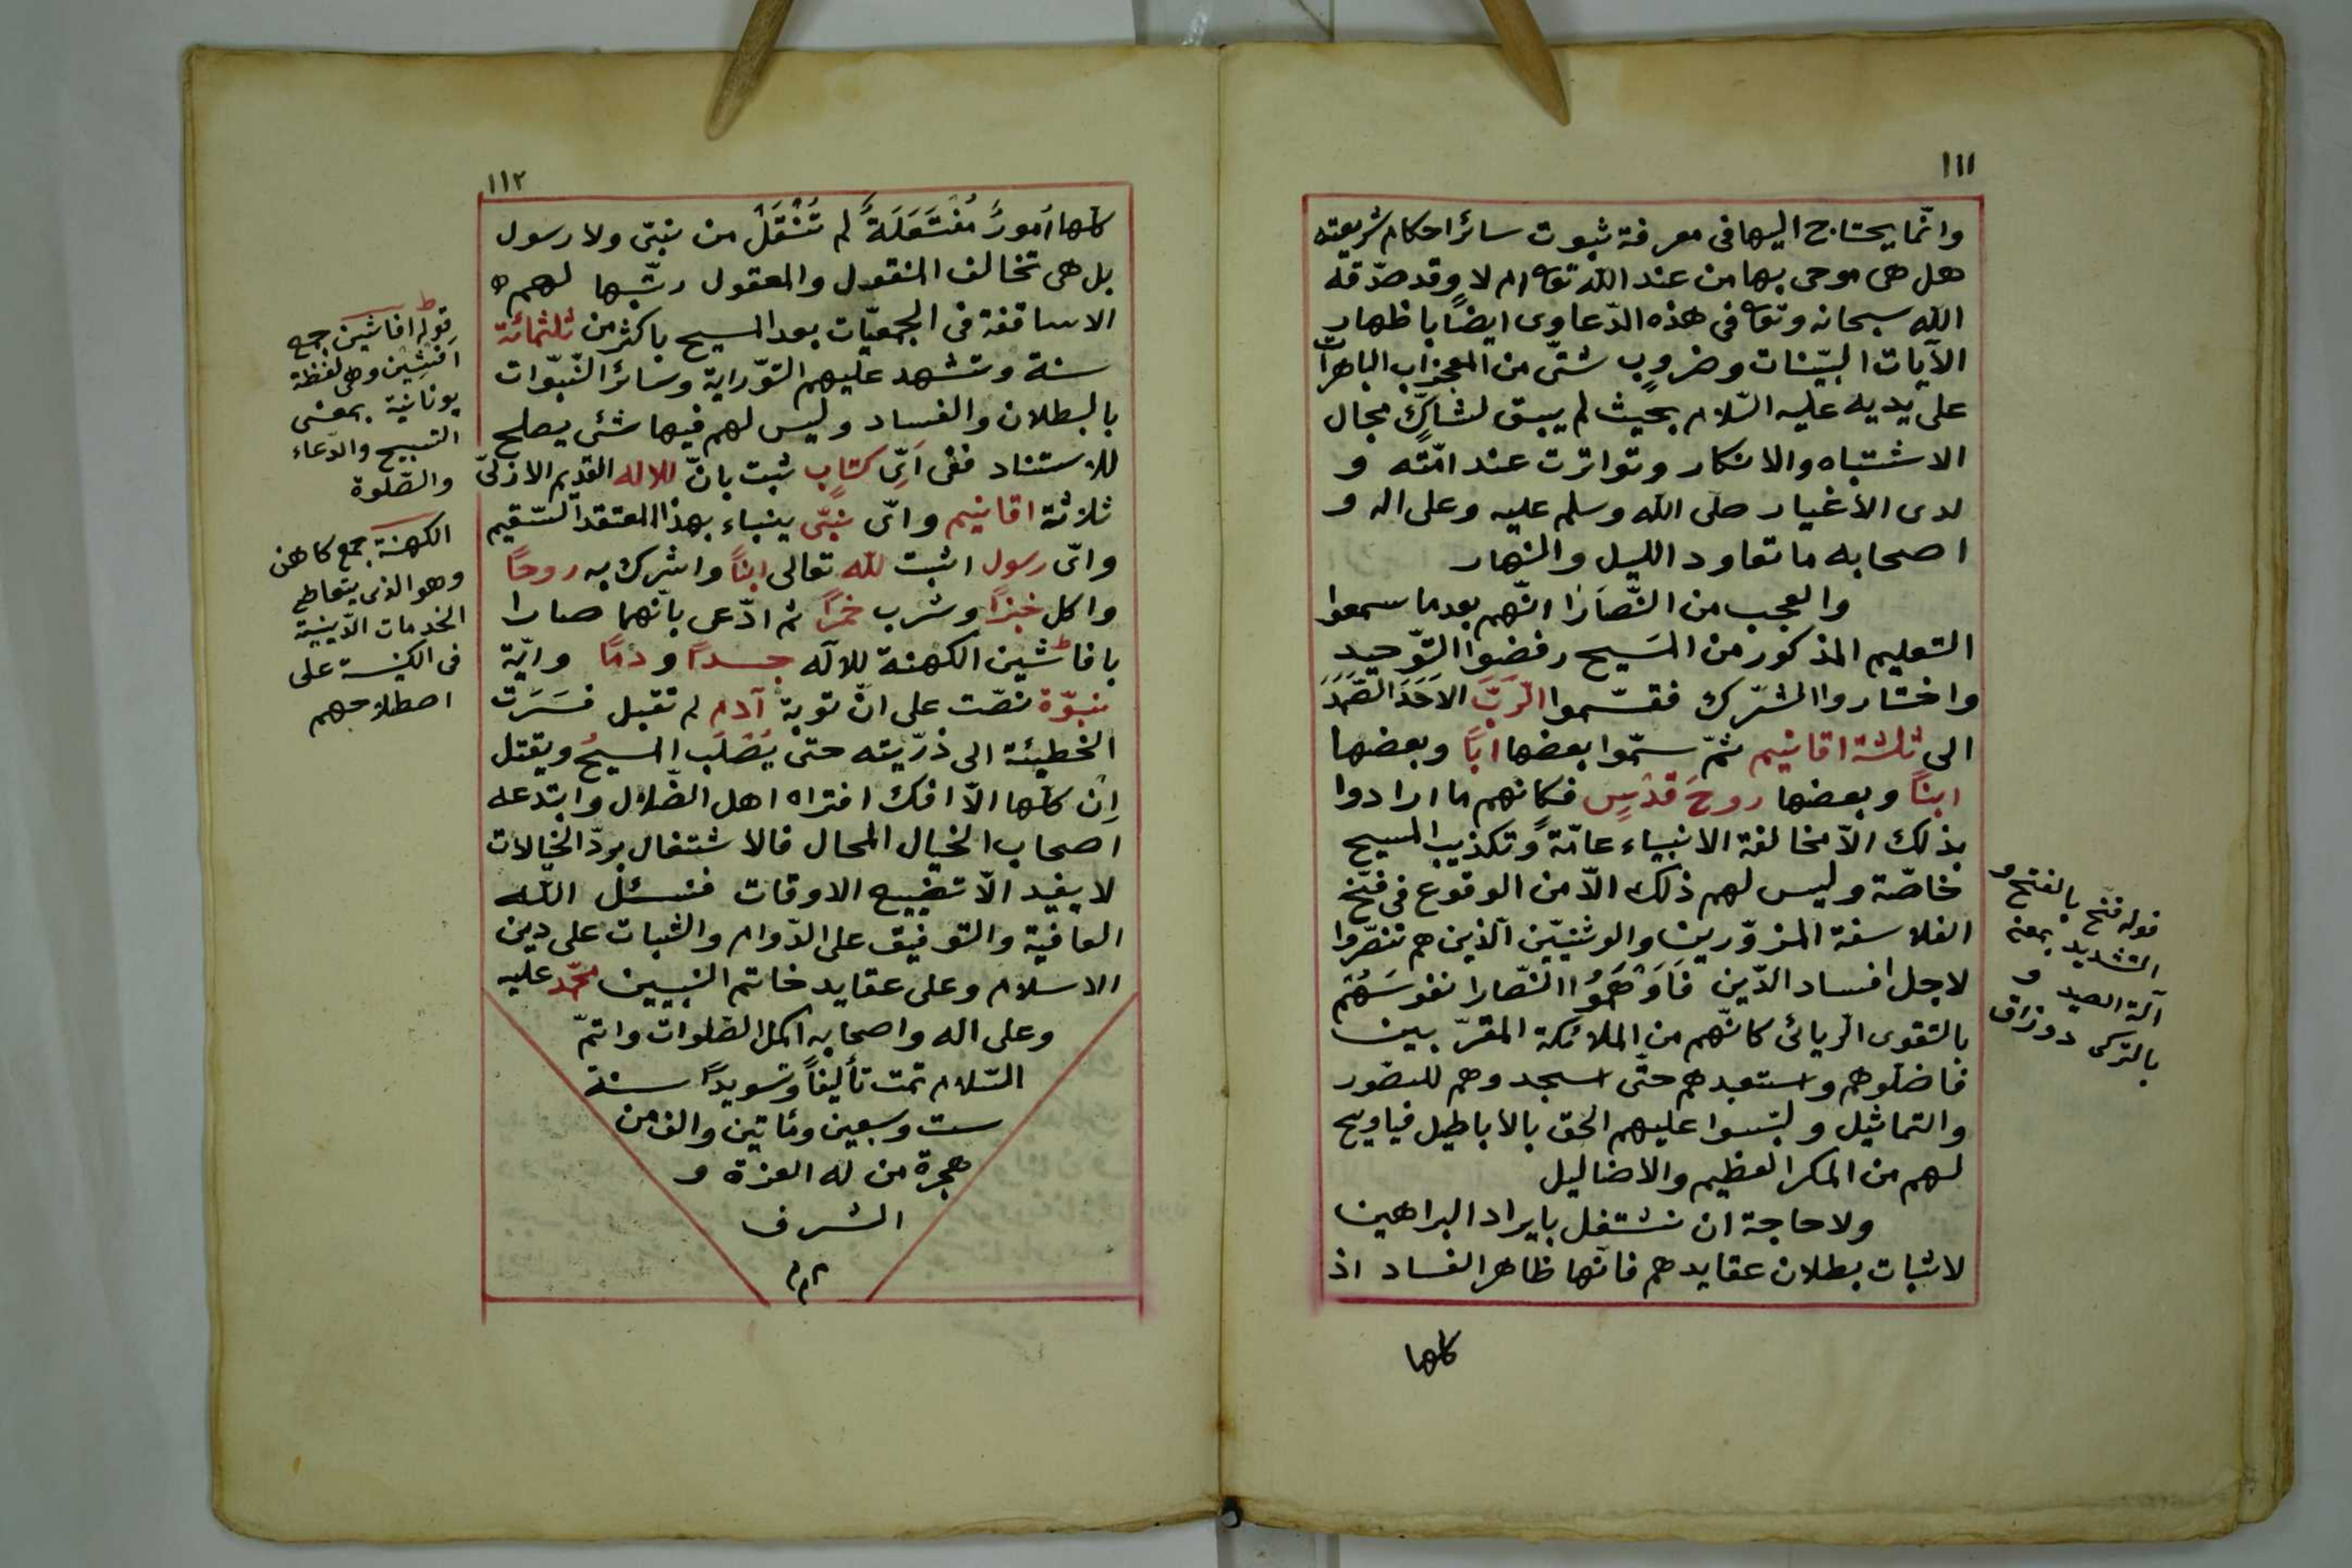 ١١١
وانّما يحتاج اليها فى معرفة ثبوت سائر احكام شريعته
هل هى موحى بها من عند الله تع‍ ام لا وقد صدّقه
الله سبحانه وتع‍ فى هذه الدّعاوى ايضًا باظهار
الآيات البيّنات وضروبٍ شتّى من المعجزات الباهرات
على يديه عليه السّلام بحيث لم يبق لشاكٍّ مجال
الاشتباه والانكار وتواترت عند امّته و
لدى الأغيار صلى الله وسلم عليه وعلى اله و
اصحابه ما تعاود الليل والنهار
والعجب من النّصَارَا انّهم بعد ما سمعوا
التعليم المذكور من المَسيح رفضوا التوّحيد
واختاروا الشّرك فقسّموا الرّبَّ الاَحَدَ الصَّمَدَ
الى ثلثة اقانيم ثمّ سمّوا بعضها ابًا وبعضها
ابنًا وبعضها روحَ قدُسٍ فكانهم ما ارادوا
بذلك الاّ مخالفة الانبياء عامّةً وتكذيب المسيح
خاصّة وليس لهم ذلك الاّ من الوقوع فى فخّ
الفلاسفة المزوّرين والوثنيّين الّذين هم تنصّروا
لاجل افساد الدّين فَاَوْهَمُوا النّصارا نفوسَهُم
بالتقوى الريائى كانّهم من الملائكة المقرّبين
فاضلّوهم واستعبدهم حتّى اسجدوهم للصّور
والتماثيل ولبّسوا عليهم الحق بالأباطيل فياويح
لهم من المكر العظيم والاضاليل
ولا حاجة ان نشتغل بايراد البراهين
لاثبات بطلان عقايدهم فانّها ظاهر الفساد اذ
كلها
قوله فخّ بالفتح و
التشديد بمعنى
آلة الصيد و
بالتركى دوزاق
١١٢
كلّها اُمورٌ مُفْتَعَلَةٌ لم تُنْقَلْ من نبىّ ولا رسول
بل هى تخالف المنقول والمعقول رتّبها لهم
الاساقفة فى الجمعيّات بعد المسيح باكثر من ثلثمائة
سنة وتشهد عليهم التوّراية وسائر النّبوّات
بالبطلان والفساد وليس لهم فيها شئ يصلح
للاستناد ففى اَىّ كتابٍ ثبت بانّ للاله القديم الازلىّ
ثلاثة اقانيم واىّ نبىّ ينباء بهذا المعتقد السّقيم
واىّ رسول اثبت لله تعالى ابنًا واشرك به روحًا
واكل خبزًا وشرب خمرًا ثم ادّعى بانّهما صارا
بافاشين الكهنة للاله جسدًا ودمًا وايّة
نبوّة نصّت على انّ توبة آدم لم تقبل فسَرَت
الخطيئة الى ذرّيته حتى يُصْلَب المسيحُ ويقتل
اِن كلّها الاّ افك افتراه اهل الضّلال وابتدعه
اصحاب الخيال المحال فالاشتغال بردّ الخيالات
لا يفيد الاّ تضييع الاوقات فنسئل الله
العافية والتوفيق على الدّوام والثبات على دين
الاسلام وعلى عقايد خاتم النبيين محمّد عليه
وعلى اله واصحابه اكمل الصّلوات واتمّ
السّلام تمت تأليفًا وتسويدًا سنة
ست وسبعين ومائتين والف من
هجرة من له العزة و
الشرف
م م م
قوله افاشين جمع
افشين وهى لفظة
يونانية بمعنى
التسبيح والدّعاء
والصّلوة
الكهنة جمع كاهن
وهو الذى يتعاطى
الخدمات الدّينية
فى الكنيسة على
اصطلاحهم